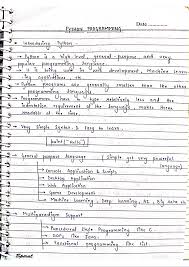 Date
PYTHON PROGRAMMING
Introducing Python
→ Python is a high level, general purpose and very
popular programming language.
→ It is being used in web development, Machine learn-
ing applications, etc.
→ Python programs are generally smaller than the other
programming languages.
→ Programmers have to type relatively less and the
indentation requirement makes them readable
Very Simple Syntax & Easy to learn.
print("Hello")
General purpose language (Simple yet very powerful
language)
Console Applications & Scripts
Desktop Application
Web Application
Game Development
Machine Learning, Deep learning, AI, Big data etc
Multiparadigm Support
Procedural Style Programming like C
OOPs like Java
Functional programming like